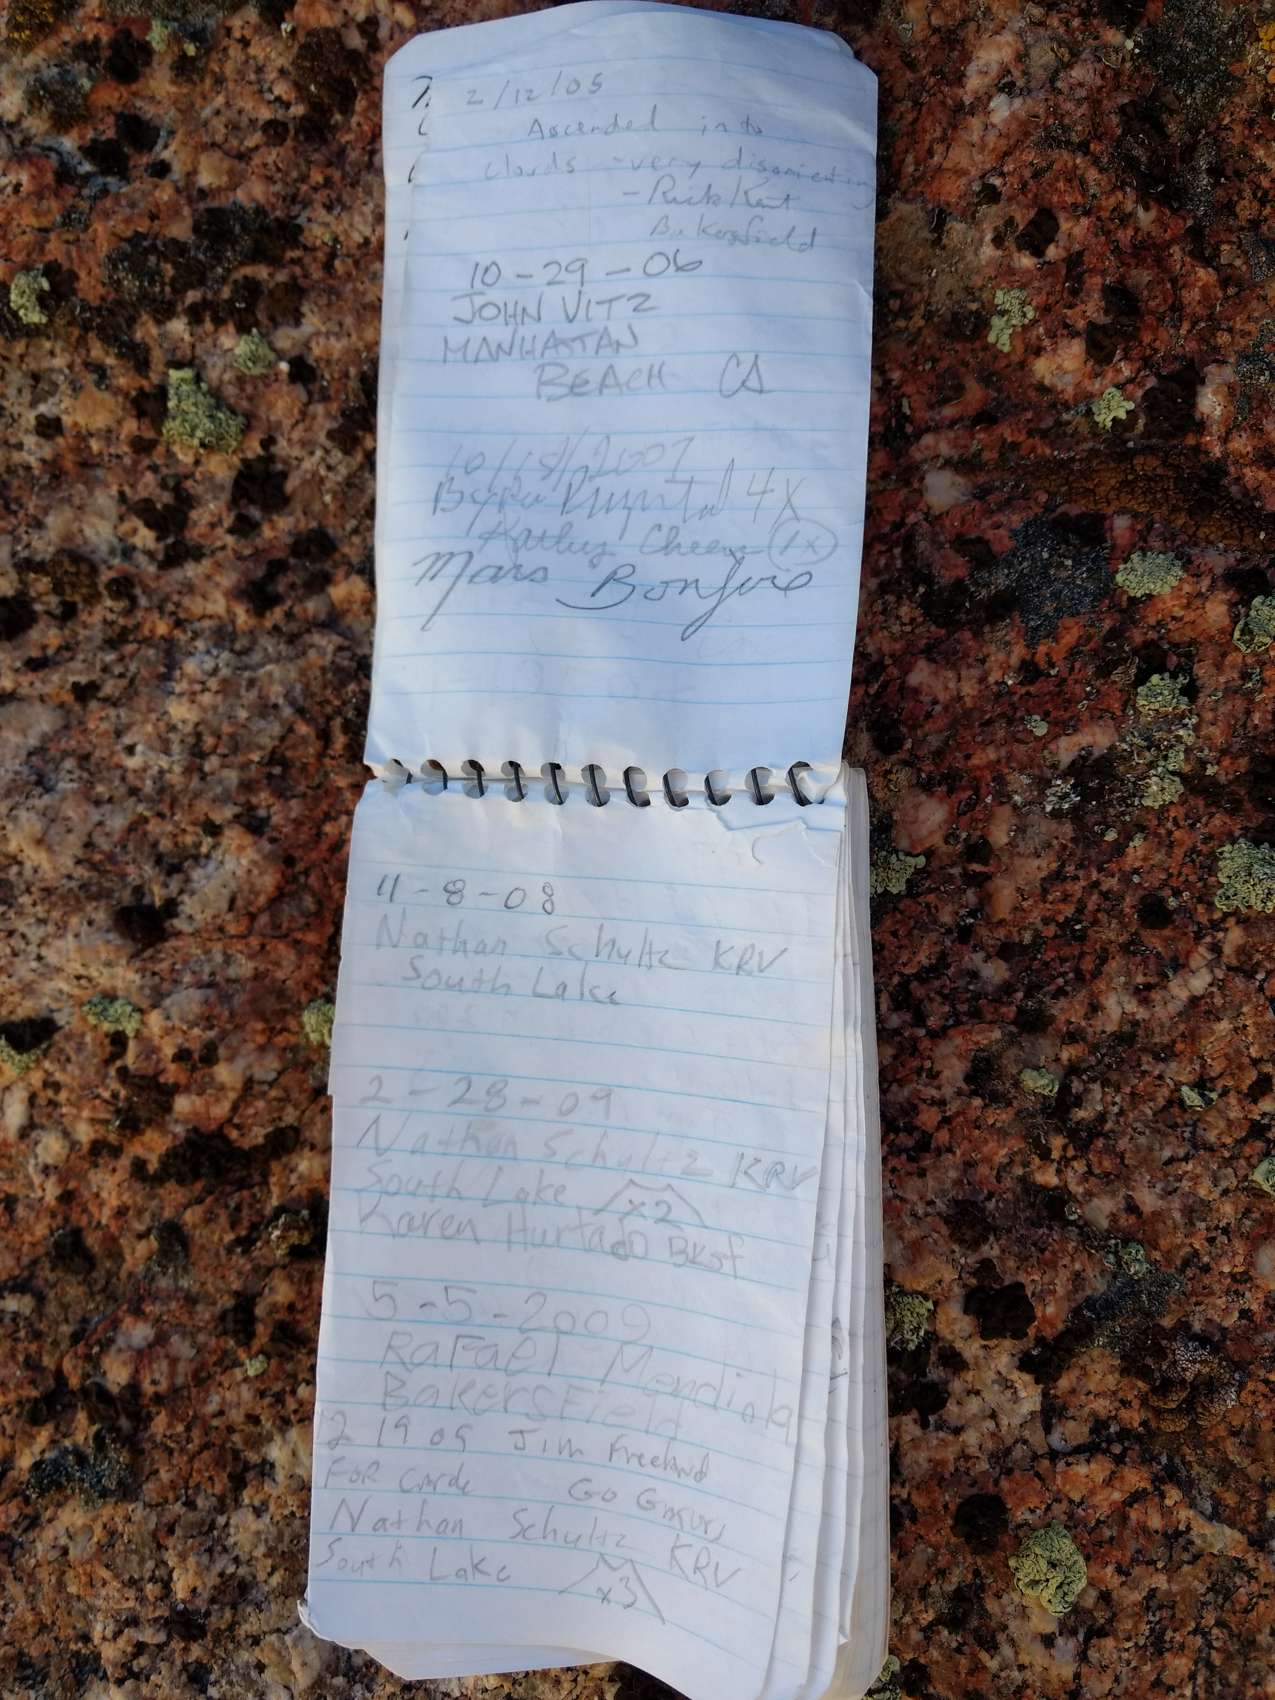 2/12/05
Ascended into
clouds - very disorienting
- Rick Kent
Bakersfield
10-29-06
JOHN VITZ
MANHATTAN
BEACH CA
2007
4X
Kathy 1x
Mars Bonfire
11-8-08
Nathan Schultz KRV
South Lake
2-28-09
Nathan Schultz KRV
South Lake x2
Karen Hurtado BKsf
5-5-2009
RaFael Mendiola
BakersField
12 19 09 Jim Freeland
FOR Go
Nathan Schultz KRV
South Lake x3